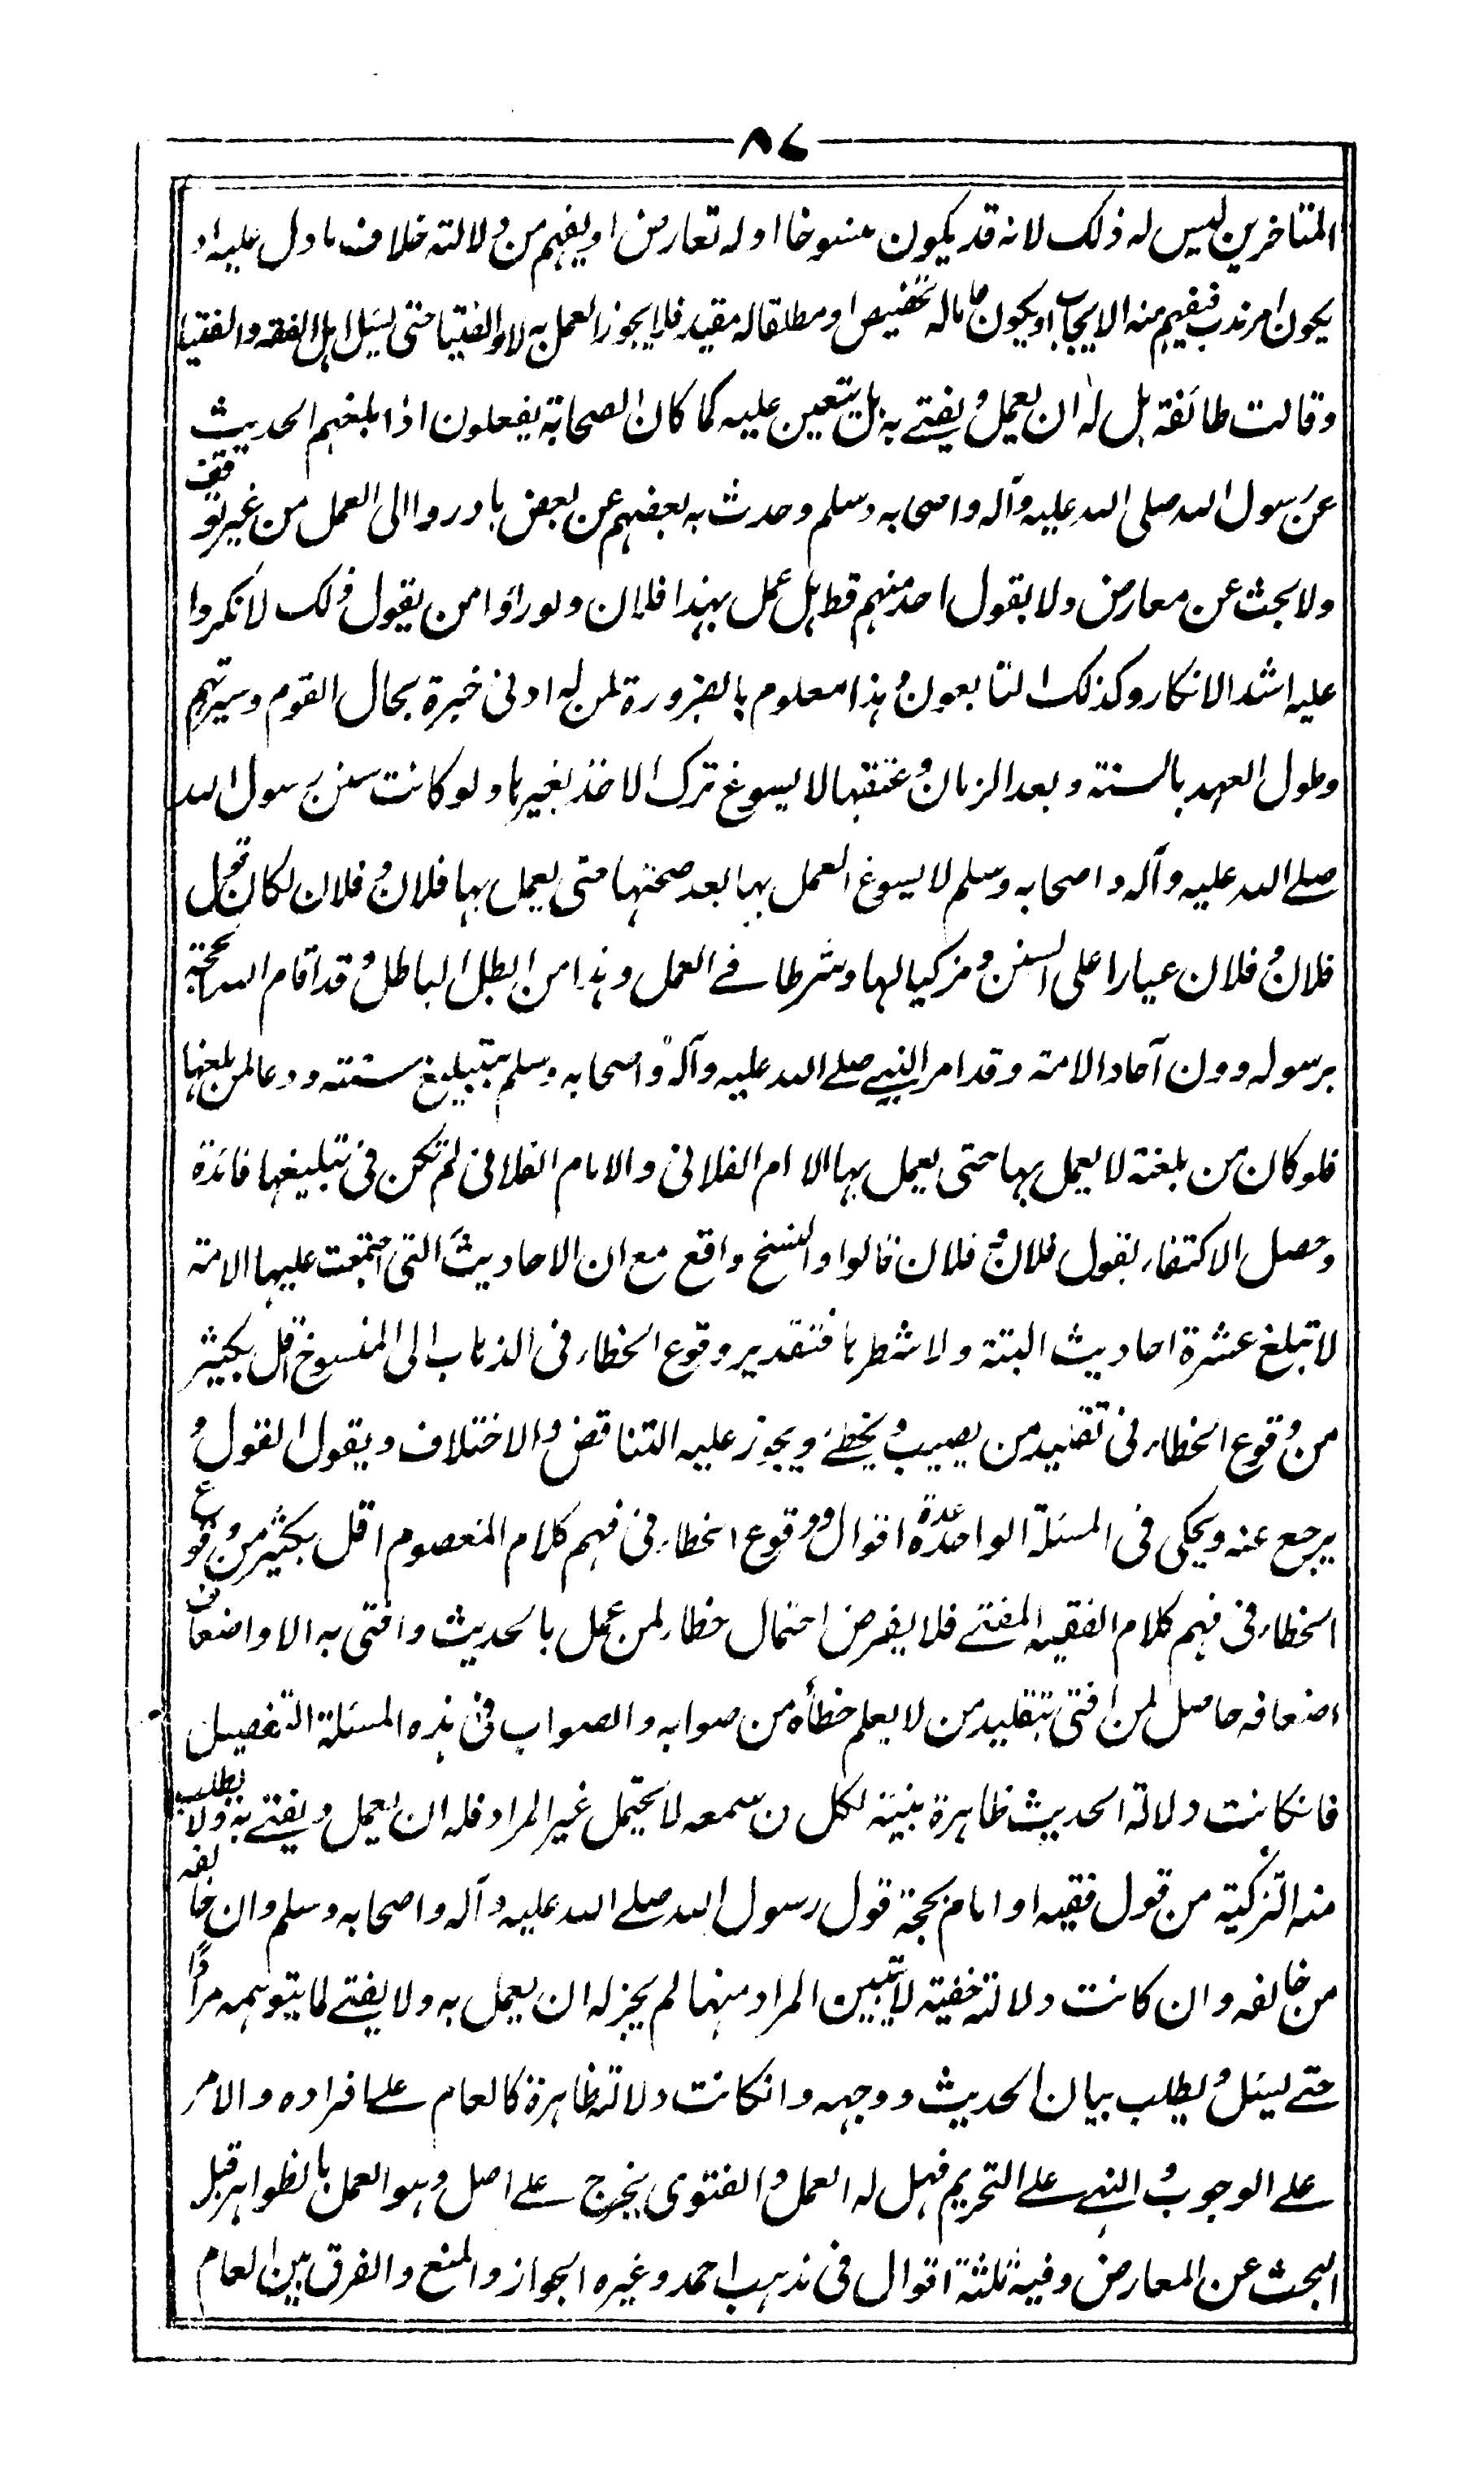 ٨٧
المتاخرين ليس له ذلك لانه قد يكون منسوخا اوله تعارض او يفهم من دلالته خلاف ما دل عليه او
يكون امر ندب فيفهم منه الايجاب او يكون عاما له تخصيص او مطلقا له مقيد فلا يجوز العمل به ولا الفتيا حتى يسئل اهل الفقه والفتيا
وقالت طائفة بل له ان يعمل و يفتے به بل يتعين عليه كما كان الصحابة يفعلون اذا بلغهم الحديث
عن رسول الله صلى الله عليه وآله واصحابه وسلم وحدث به بعضهم عن بعض بادروا الى العمل من غير توقف
ولا بحث عن معارض ولا يقول احد منهم قط هل عمل بهذا فلان ولو راوا من يقول ذلك لانكروا
عليه اشد الانكار وكذلك التابعون و هذا معلوم بالضرورة لمن له ادنى خبرة بحال القوم وسيرتهم
وطول العهد بالسنة و بعد الزمان و عتقها لا يسوغ ترك الاخذ بغيرها ولو كانت سنن رسول الله
صلے الله عليه وآله واصحابه وسلم لا يسوغ العمل بها بعد صحتها حتى يعمل بها فلان و فلان لكان قول
فلان و فلان عيارا على السنن و مزكيا لها وشرطا فے العمل وهذا من ابطل الباطل و قد اقام الله الحجة
برسوله دون آحاد الامة وقد امر النبے صلے الله عليه وآله واصحابه وسلم بتبليغ سنته ودعا لمن بلغها
فلو كان من بلغته لا يعمل بها حتى يعمل بها الامام الفلانى والامام الفلانى لم تكن فى تبليغها فائدة
وحصل الاكتفاء بقول فلان و فلان قالوا والنسخ واقع مع ان الاحاديث التى اجتمعت عليها الامة
لا تبلغ عشرة احاديث البتة ولا شطرها فتقدير وقوع الخطاء فى الذهاب الى المنسوخ اقل بكثير
من وقوع الخطاء فى تقليد من يصيب و يخطئ ويجوز عليه التناقض والاختلاف ويقول القول و
يرجع عنه ويحكى فى المسئلة الواحدة عدة اقوال و وقوع الخطاء فى فهم كلام المعصوم اقل بكثير من وقوع
الخطاء فى فهم كلام الفقيه المفتے فلا يفرض احتمال خطاء لمن عمل بالحديث وافتى به الا واضعاف
اضعافه حاصل لمن افتى بتقليد من لا يعلم خطأه من صوابه والصواب فى هذه المسئلة التفصيل
فانكانت دلالة الحديث ظاهرة بينة لكل من سمعه لا يحتمل غير المراد فله ان يعمل و يفتے به ولا يطلب
منه التزكية من قول فقيه او امام بحجة قول رسول الله صلے الله عليه وآله واصحابه وسلم وان خالفه
من خالفه وان كانت دلالته خفية لا يتبين المراد منها لم يجز له ان يعمل به ولا يفتے لما يتوهمه مرادا
حتے يسئل و يطلب بيان الحديث ووجهه وانكانت دلالته ظاهرة كالعام علے افراده والامر
علے الوجوب و النهے علے التحريم فهل له العمل والفتوى يخرج علے اصل وهو العمل بالظواهر قبل
البحث عن المعارض وفيه ثلثة اقوال فى مذهب احمد وغيره الجواز والمنع والفرق بين العام